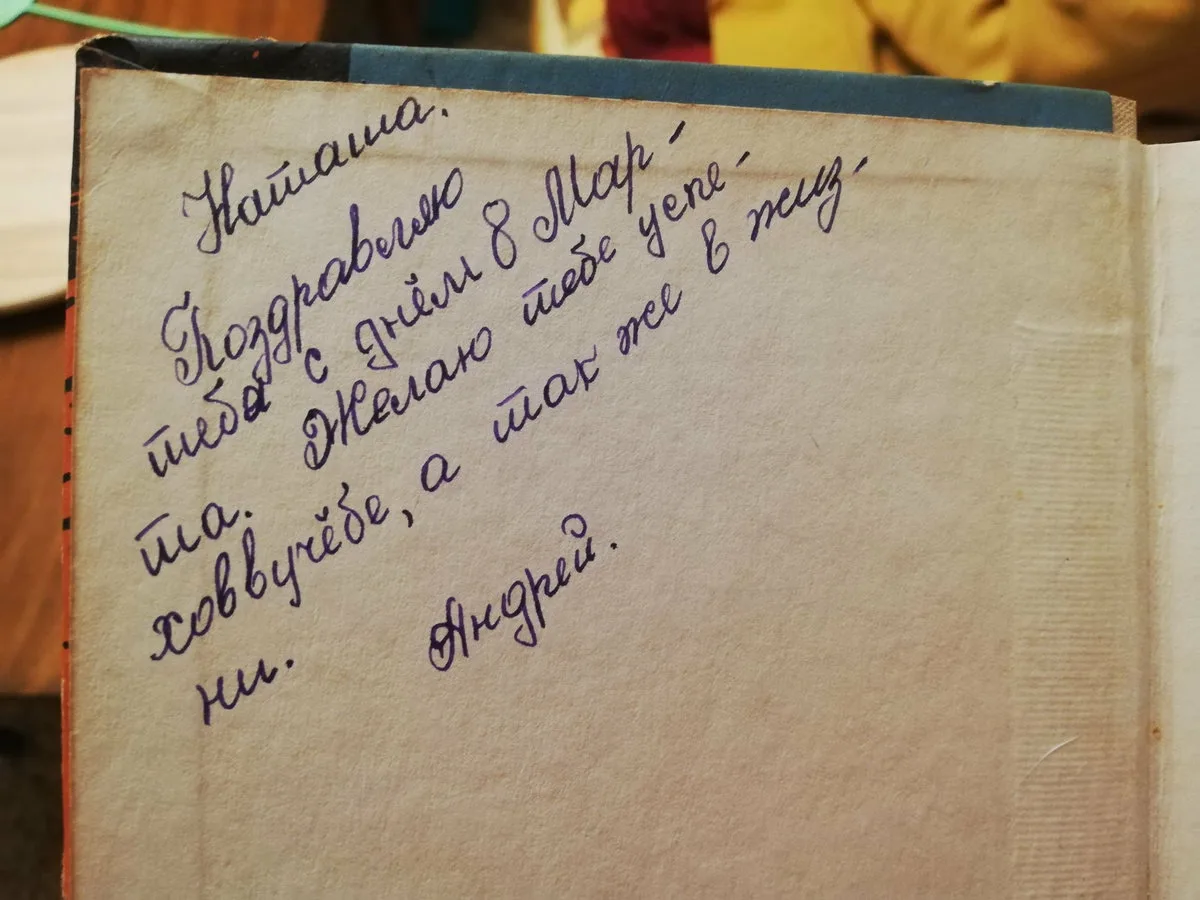 Наташа.
Поздравляю
тебя с днём 8 Мар-
та. Желаю тебе успе-
хов в учёбе, а так же в жиз-
ни. Андрей.